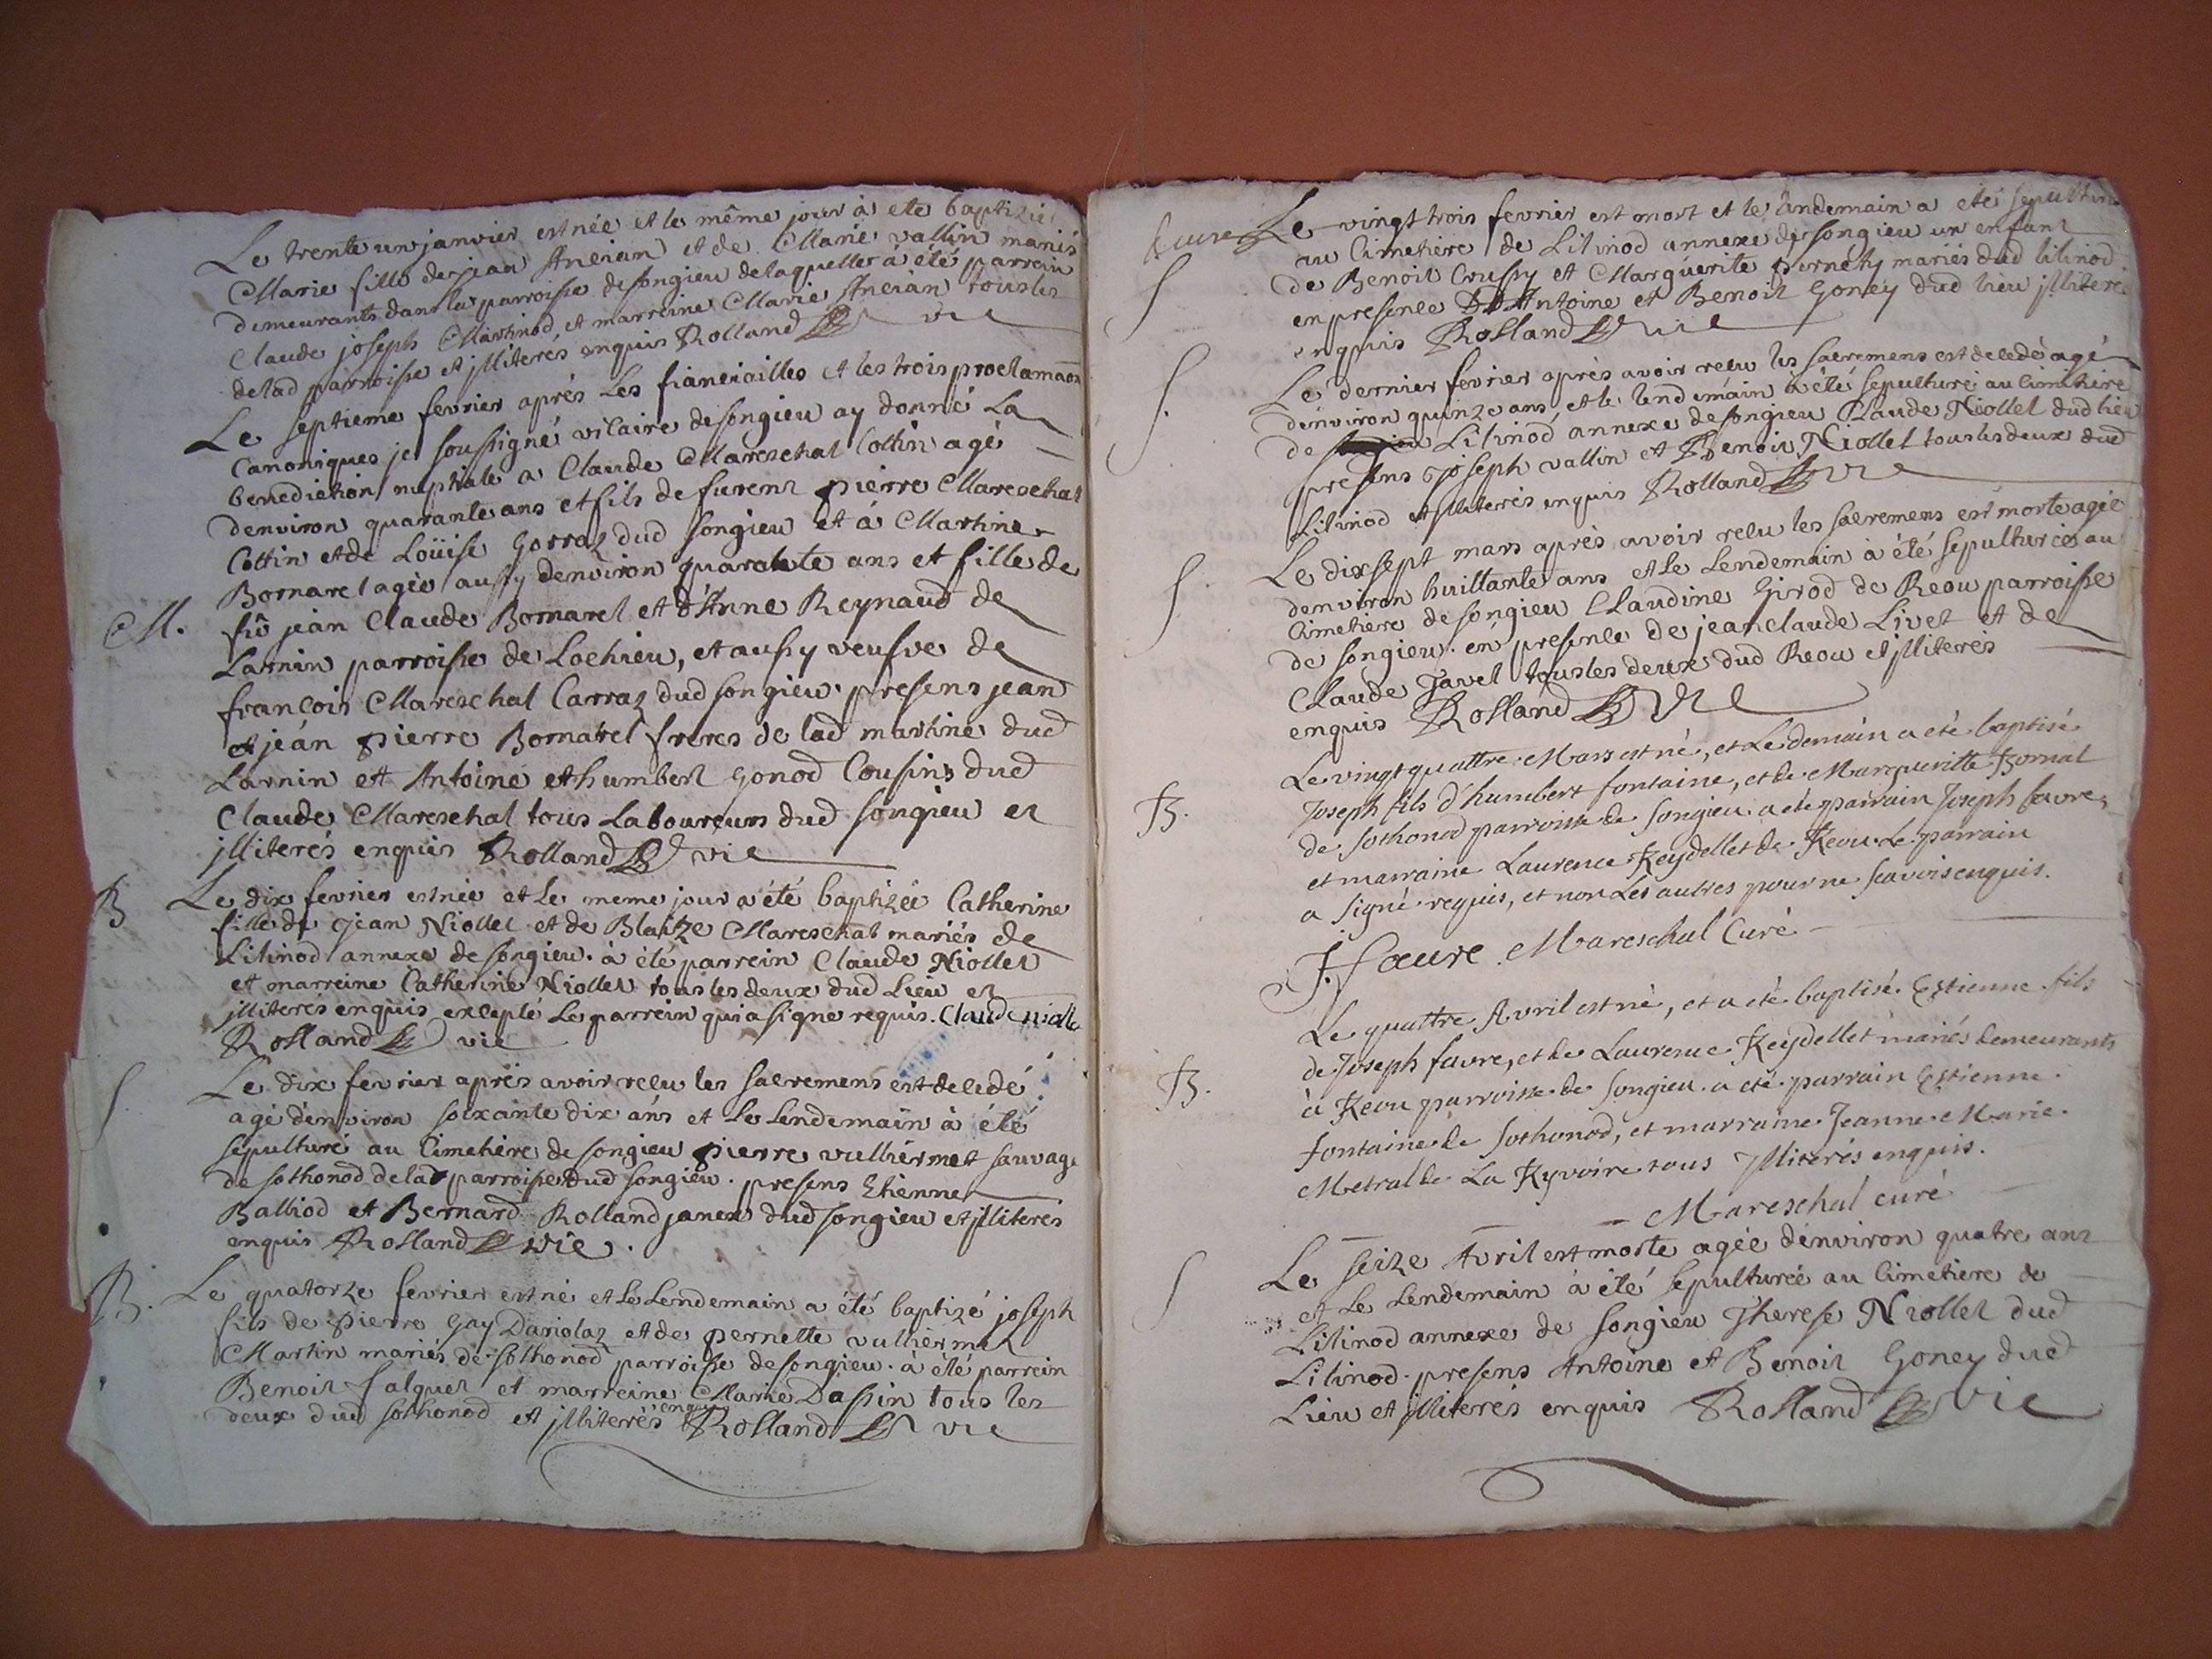 Le trente un janvier est née et le même jour à ete baptizée
Marie fille de jean Ancian et de Marie vallin mariés
demeurants dans la parroisse de songieu de laquelle à été parrein
Claude joseph Martinod et marreine Marie Ancian tous les
de lad parroisse et jlliterés enquis Rolland vic
Le septieme fevrier aprés Les fianciailles et les trois proclamaõns
Canoniques je soussigné vicaire de songieu ay donné La
benediction nuptiale a Claude Mareschal Cottin agé
denviron quarante ans et fils de furent pierre Mareschal
Cottin et de Loüise Gorraz dud songieu et à Martine
Bornarel agée aussy denviron quarante ans et fille de
M.
fû jean Claude Bornarel et d'Anne Reynaud de
Larnin parroisse de Lochieu, et aussy veufve de
françois Mareschal Carraz dud songieu. presens jean
et jean pierre Bornarel freres de lad martine dud
Larnin et Antoine et humbert Gonod Cousins dud
Claude Mareschal tous Laboureurs dud songieu et
jlliterés enquis Rolland vic
B
Le dix fevrier est née et Le meme jour a été baptizée Catherine
fille de Jean Niollet et de Blaize Mareschal mariés de
Lilinod annexe de songieu. à été parrein Claude Niollet
et marreine Catherine Niollet tous les deux dud Lieu et
jlliterés enquis excepté Le parrein qui a signe requis. Claude niolle
Rolland vic
S
Le dix fevrier aprés avoir recu les sacremens est decedé
agé d'environ soixante dix ans et Le Lendemain à été
sepulturé au Cimetière de songieu pierre vulliermet sauvage
de sothonod de lad parroisse dud songieu. presens Etienne
Balliod et Bernard Rolland janex dud songieu et jlliterés
enquis Rolland vic.
B.
Le quatorze fevrier est né et Le Lendemain a été baptizé joseph
fils de pierre Gay Dariolaz et de pernette vulliermet
Martin mariés de sothonod parroisse de songieu. à été parrein
Benoit falquet et marreine Marie Dassin tous les
deux dud sothonod et jlliterés enquis Rolland vic
Le vingt trois fevrier est mort et le Lendemain a eté sepulturé
S
au Cimetiére de Lilinod annexe de songieu un enfant
de Benoit Crussy et Marguerite mariés dud lilinod
en presence D'Antoine et Benoit Goney dud lieu jlliterés
enquis Rolland vic
S.
Le dernier fevrier aprés avoir recu les sacremens est decedé agé
d'environ quinze ans, et le lendemain à été sepulturé au Cimetière
de Lilinod annexe de songieu Claude Niollet dud lieu
presens joseph vallin et Benoit Niollet tous les deux dud
Lilinod et jlliterés enquis Rolland vic
S.
Le dix sept mars aprés avoir recu les sacremens est morte agée
denviron huittante ans et Le Lendemain à été sepulturée au
Cimetiere de songieu Claudine Girod de Reou parroisse
de songieu. en presence de jean claude Livet et de
Claude Javel tous les deux dud Reou et jlliterés
enquis Rolland vic
B.
Le vingt quattre Mars est né, et Le demain a eté baptisé
Joseph fils d'humbert fontaine, et de Margueritte Bornat
de sothonod parroisse de songieu. a eté parrain Joseph favre,
et marraine Laurence Reydellet de Reou. Le parrain
a signé requis, et non Les autres pour ne scavoir enquis.
J. faure Mareschal Curé
B.
Le quattre Avril est né, et a eté baptisé Estienne fils
de Joseph favre, et de Laurence Reydellet mariés demeurants
à Reou parroisse de songieu. a eté parrain Estienne
fontaine de sothonod, et marraine Jeanne Marie
Metral de La Ryvoire tous Jlliterés enquis.
Mareschal curé
S
Le seize Avril est morte agée d'environ quatre ans
et Le Lendemain à été sepulturée au Cimetiere de
Lilinod annexe de songieu Therese Niollet dud
Lilinod. presens Antoine et Benoit Goney dud
Lieu et jlliterés enquis Rolland vic